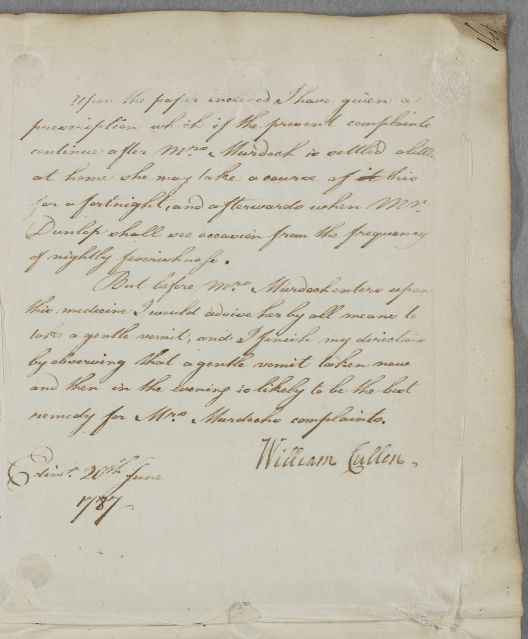 Upon the paper inclosed I have given a
prescription which if the present complaints
continue after Mrs. Murdoch is settled a little
at home she may take a course of it this
for a fortnight, and afterwards when Mr.
Dunlop shall see occasion from the frequency
of nightly feverishness.
But before Mrs. Murdoch enters upon
this medicine I would advise her by all means to
take a gentle vomit, and I finish my directions
by observing that a gentle vomit taken now
and then in the evening is likely to be the best
remedy for Mrs. Murdochs complaints.
William Cullen.
Edinr. 20th June
1787